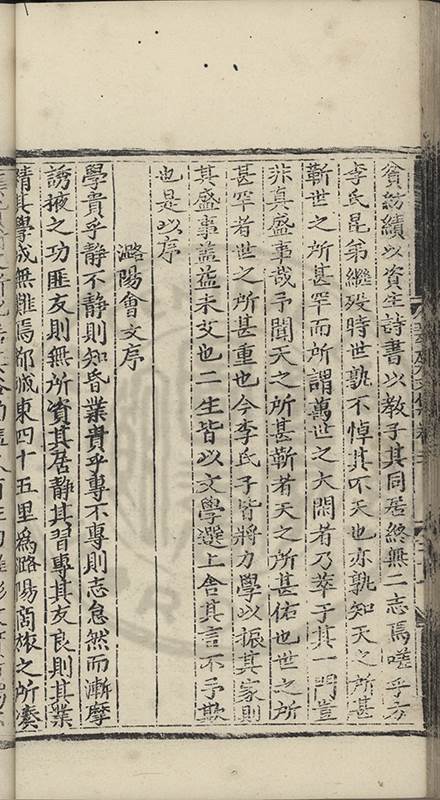 貧紡績以資生詩書以教子其同居終無二志焉嗟乎方
李氏昆弟繼歿時世孰不悼其不天也亦孰知天之所甚
靳世之所甚罕而所謂萬世之大閑者乃萃于其一門豈
非真盛事哉予聞天之所甚靳者天之所甚佑也世之所
甚罕者世之所甚重也今李氏子皆將力學以振其家則
其盛事蓋益未艾也二生皆以文學選上舍其言不予欺
也是以序
潞陽會文序
學貴乎靜不靜則知昏業貴乎專不專則志怠然而漸摩
誘掖之功匪友則無所資其居靜其習專其友良則其業
精其學成無難焉郡城東四十五里為潞陽商旅之所湊